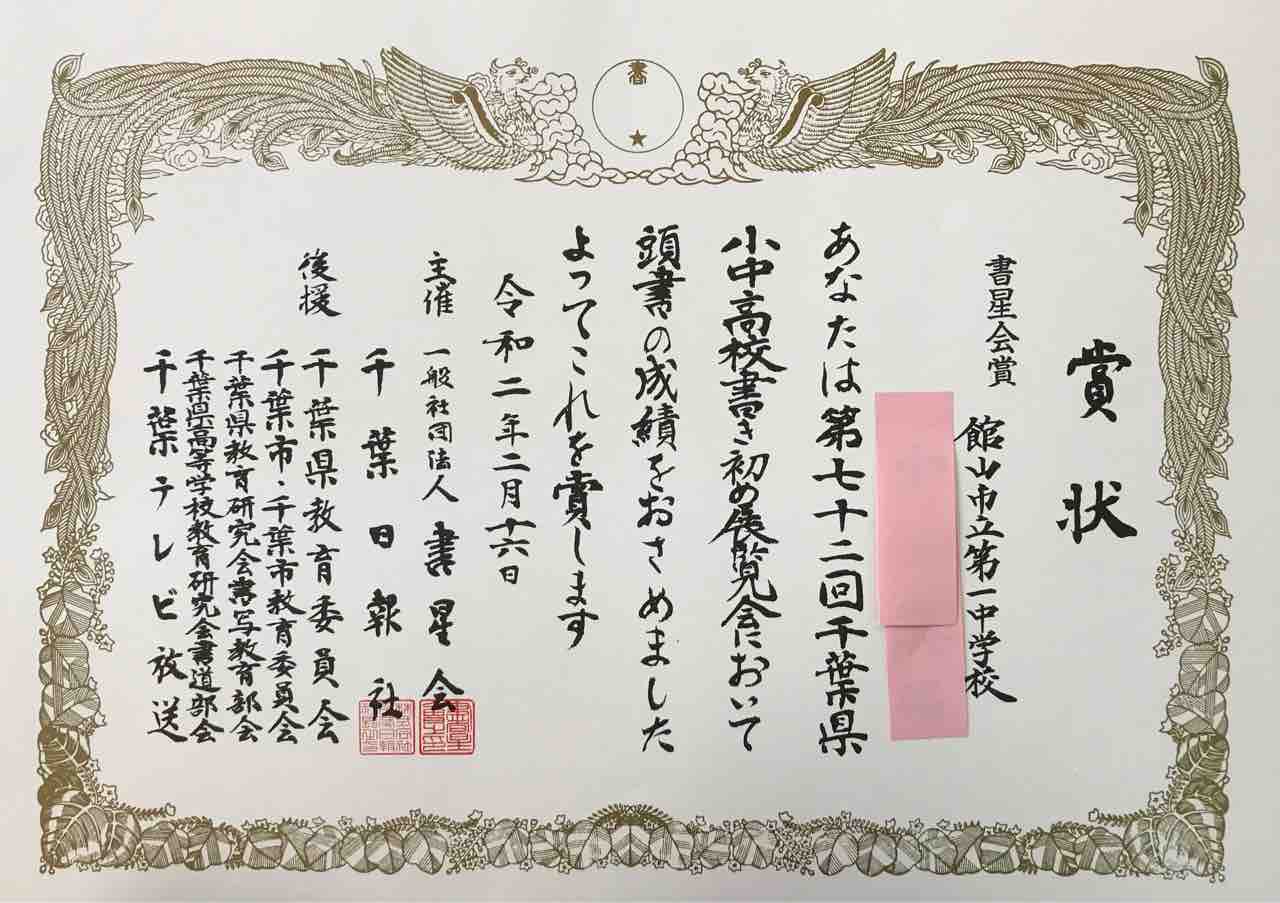 書
賞状
書星会賞
館山市立第一中学校
あなたは第七十二回千葉県
小中高校書き初め展覧会において
頭書の成績をおさめました
よってこれを賞します
令和二年二月十六日
主催 一般社団法人 書星会
千葉日報社
後援 千葉県教育委員会
千葉市・千葉市教育委員会
千葉県教育研究会書写教育部会
千葉県高等学校教育研究会書道部会
千葉テレビ放送